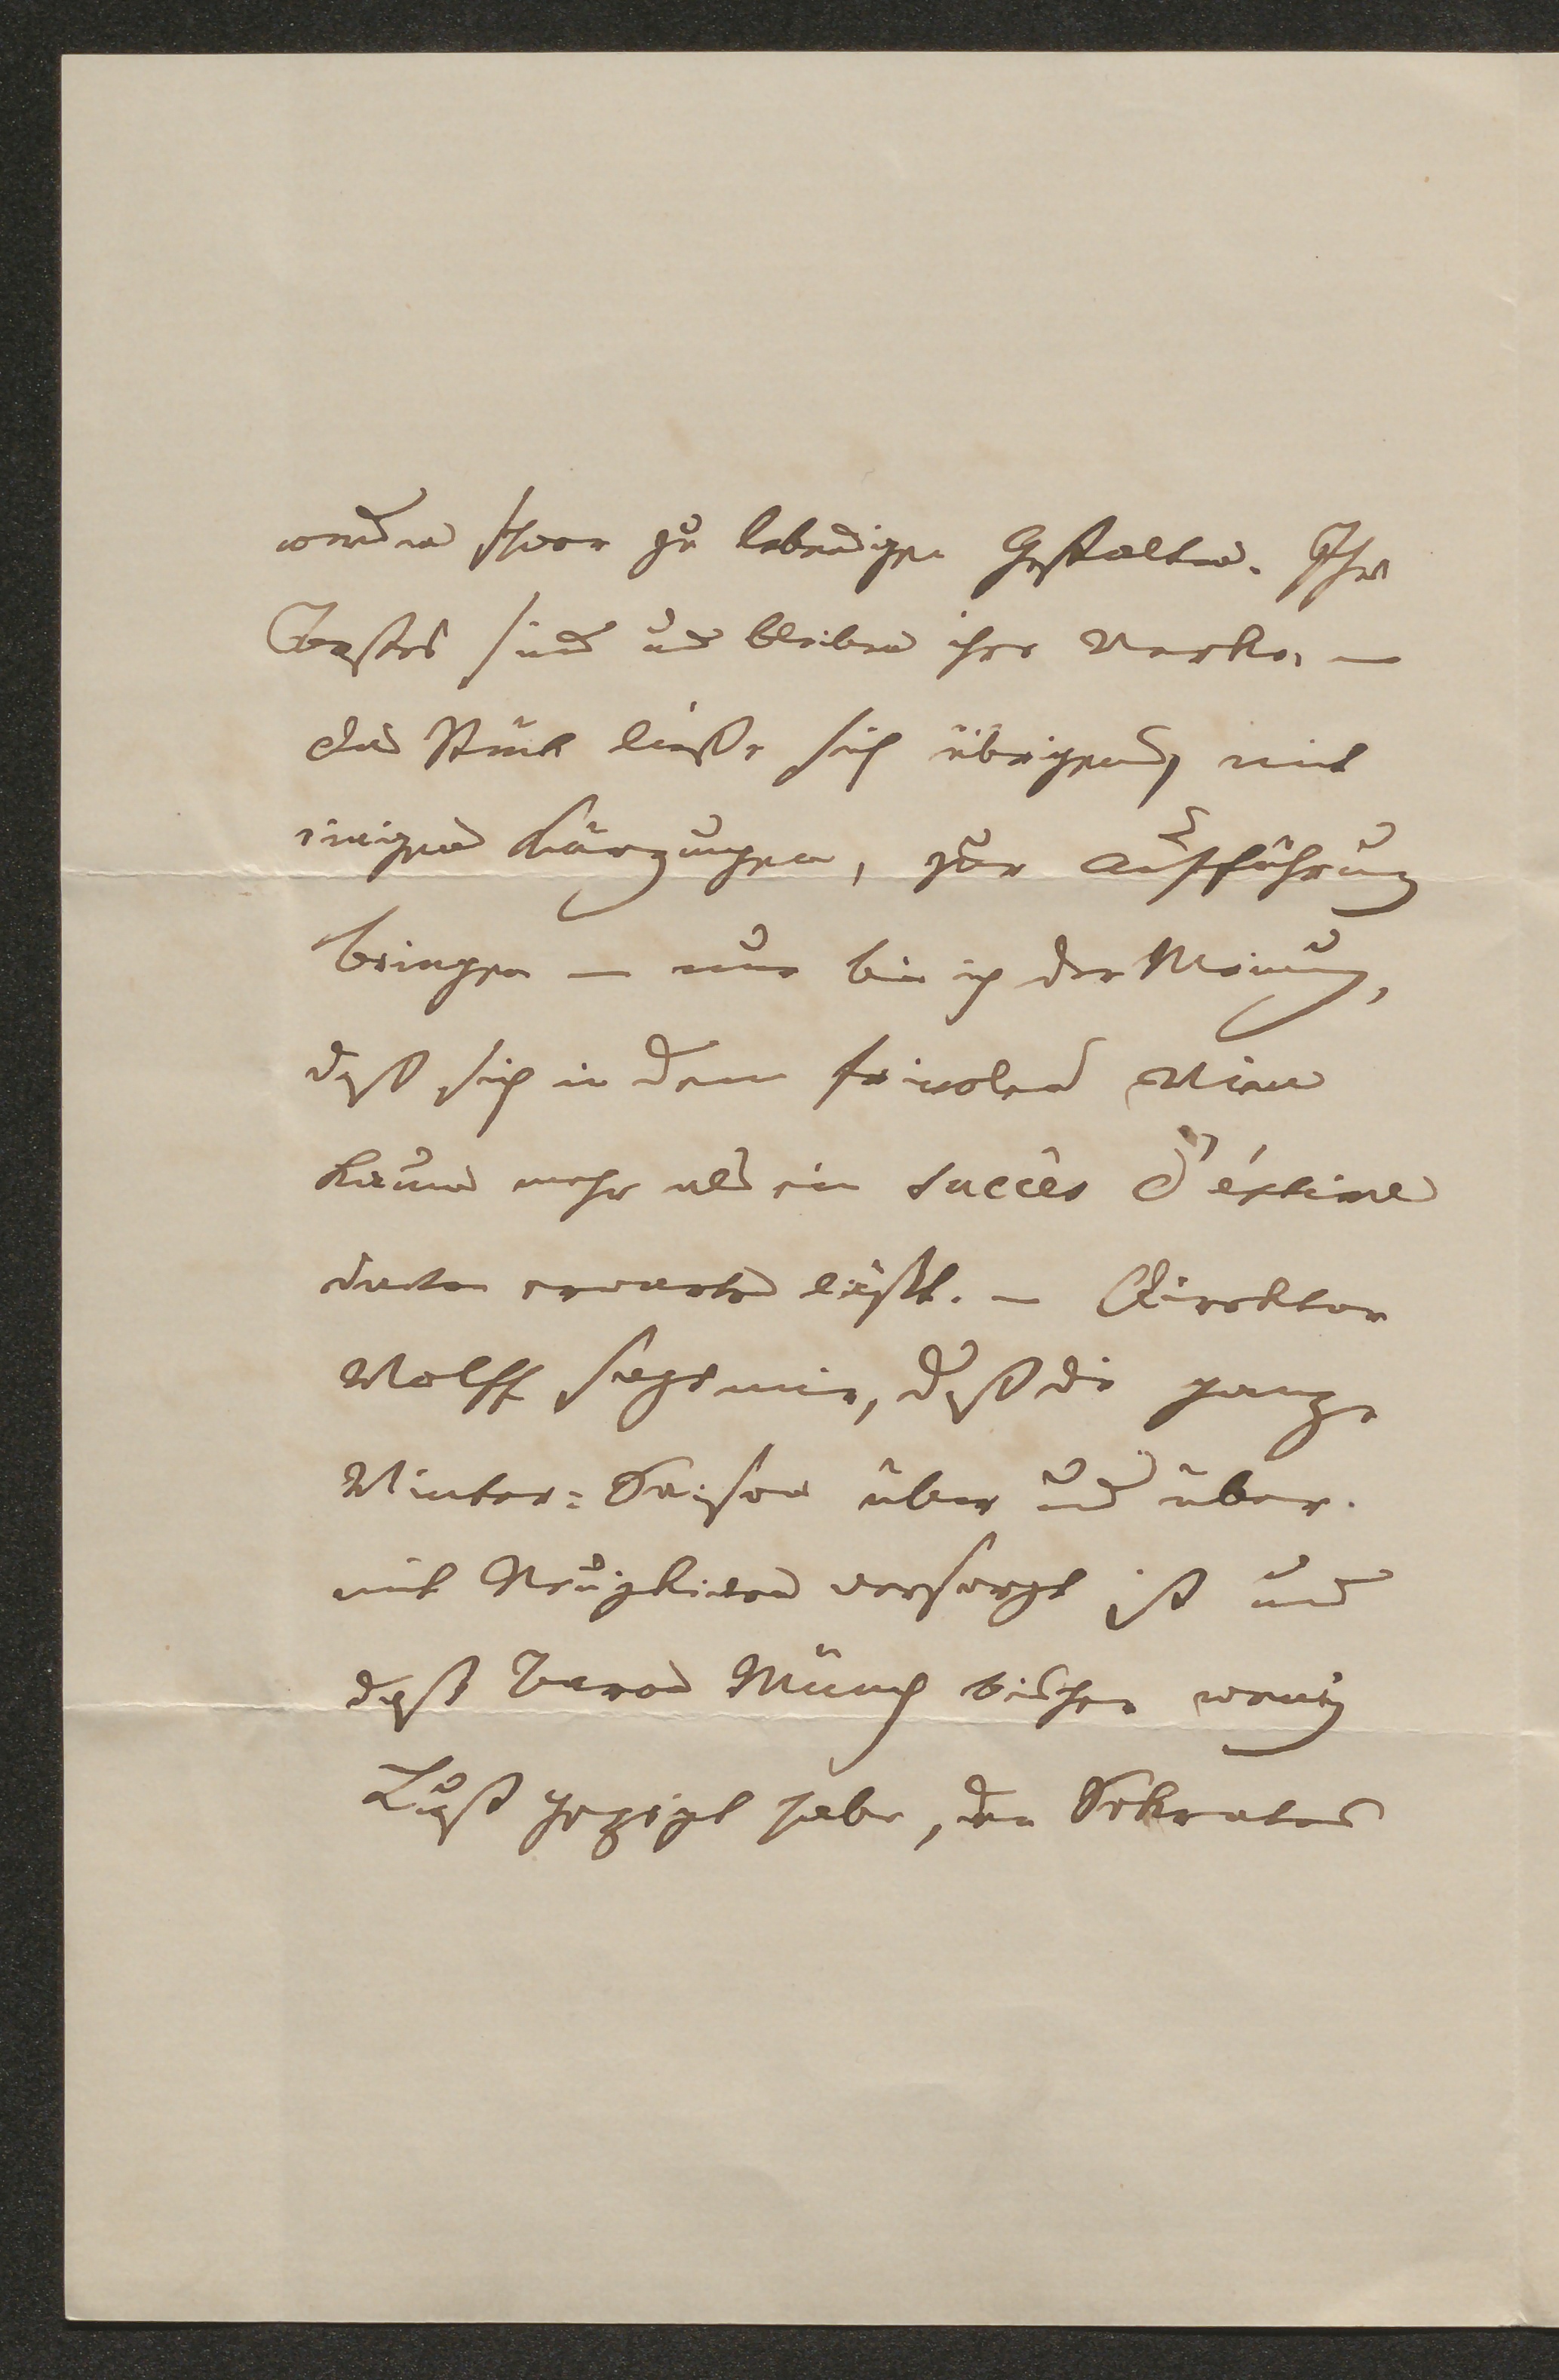 werden schwer zu lebendigen Gestalten. Ihr
Bestes sind und bleiben ihre Werke. —
Das Stück ließe sich übrigens, mit
einigen Kürzungen, zur Aufführung
bringen — nur bin ich der Meinung,
daß sich in dem frivolen Wien
kaum mehr als ein succès d'éstime
erwarten läßt. — Direktor
Wolff sagt mir, daß die ganze
Winter=Saison über und über
mit Neuigkeiten versorgt ist und
daß Baron Münch bisher wenig
Lust gezeigt habe, den Sokrates